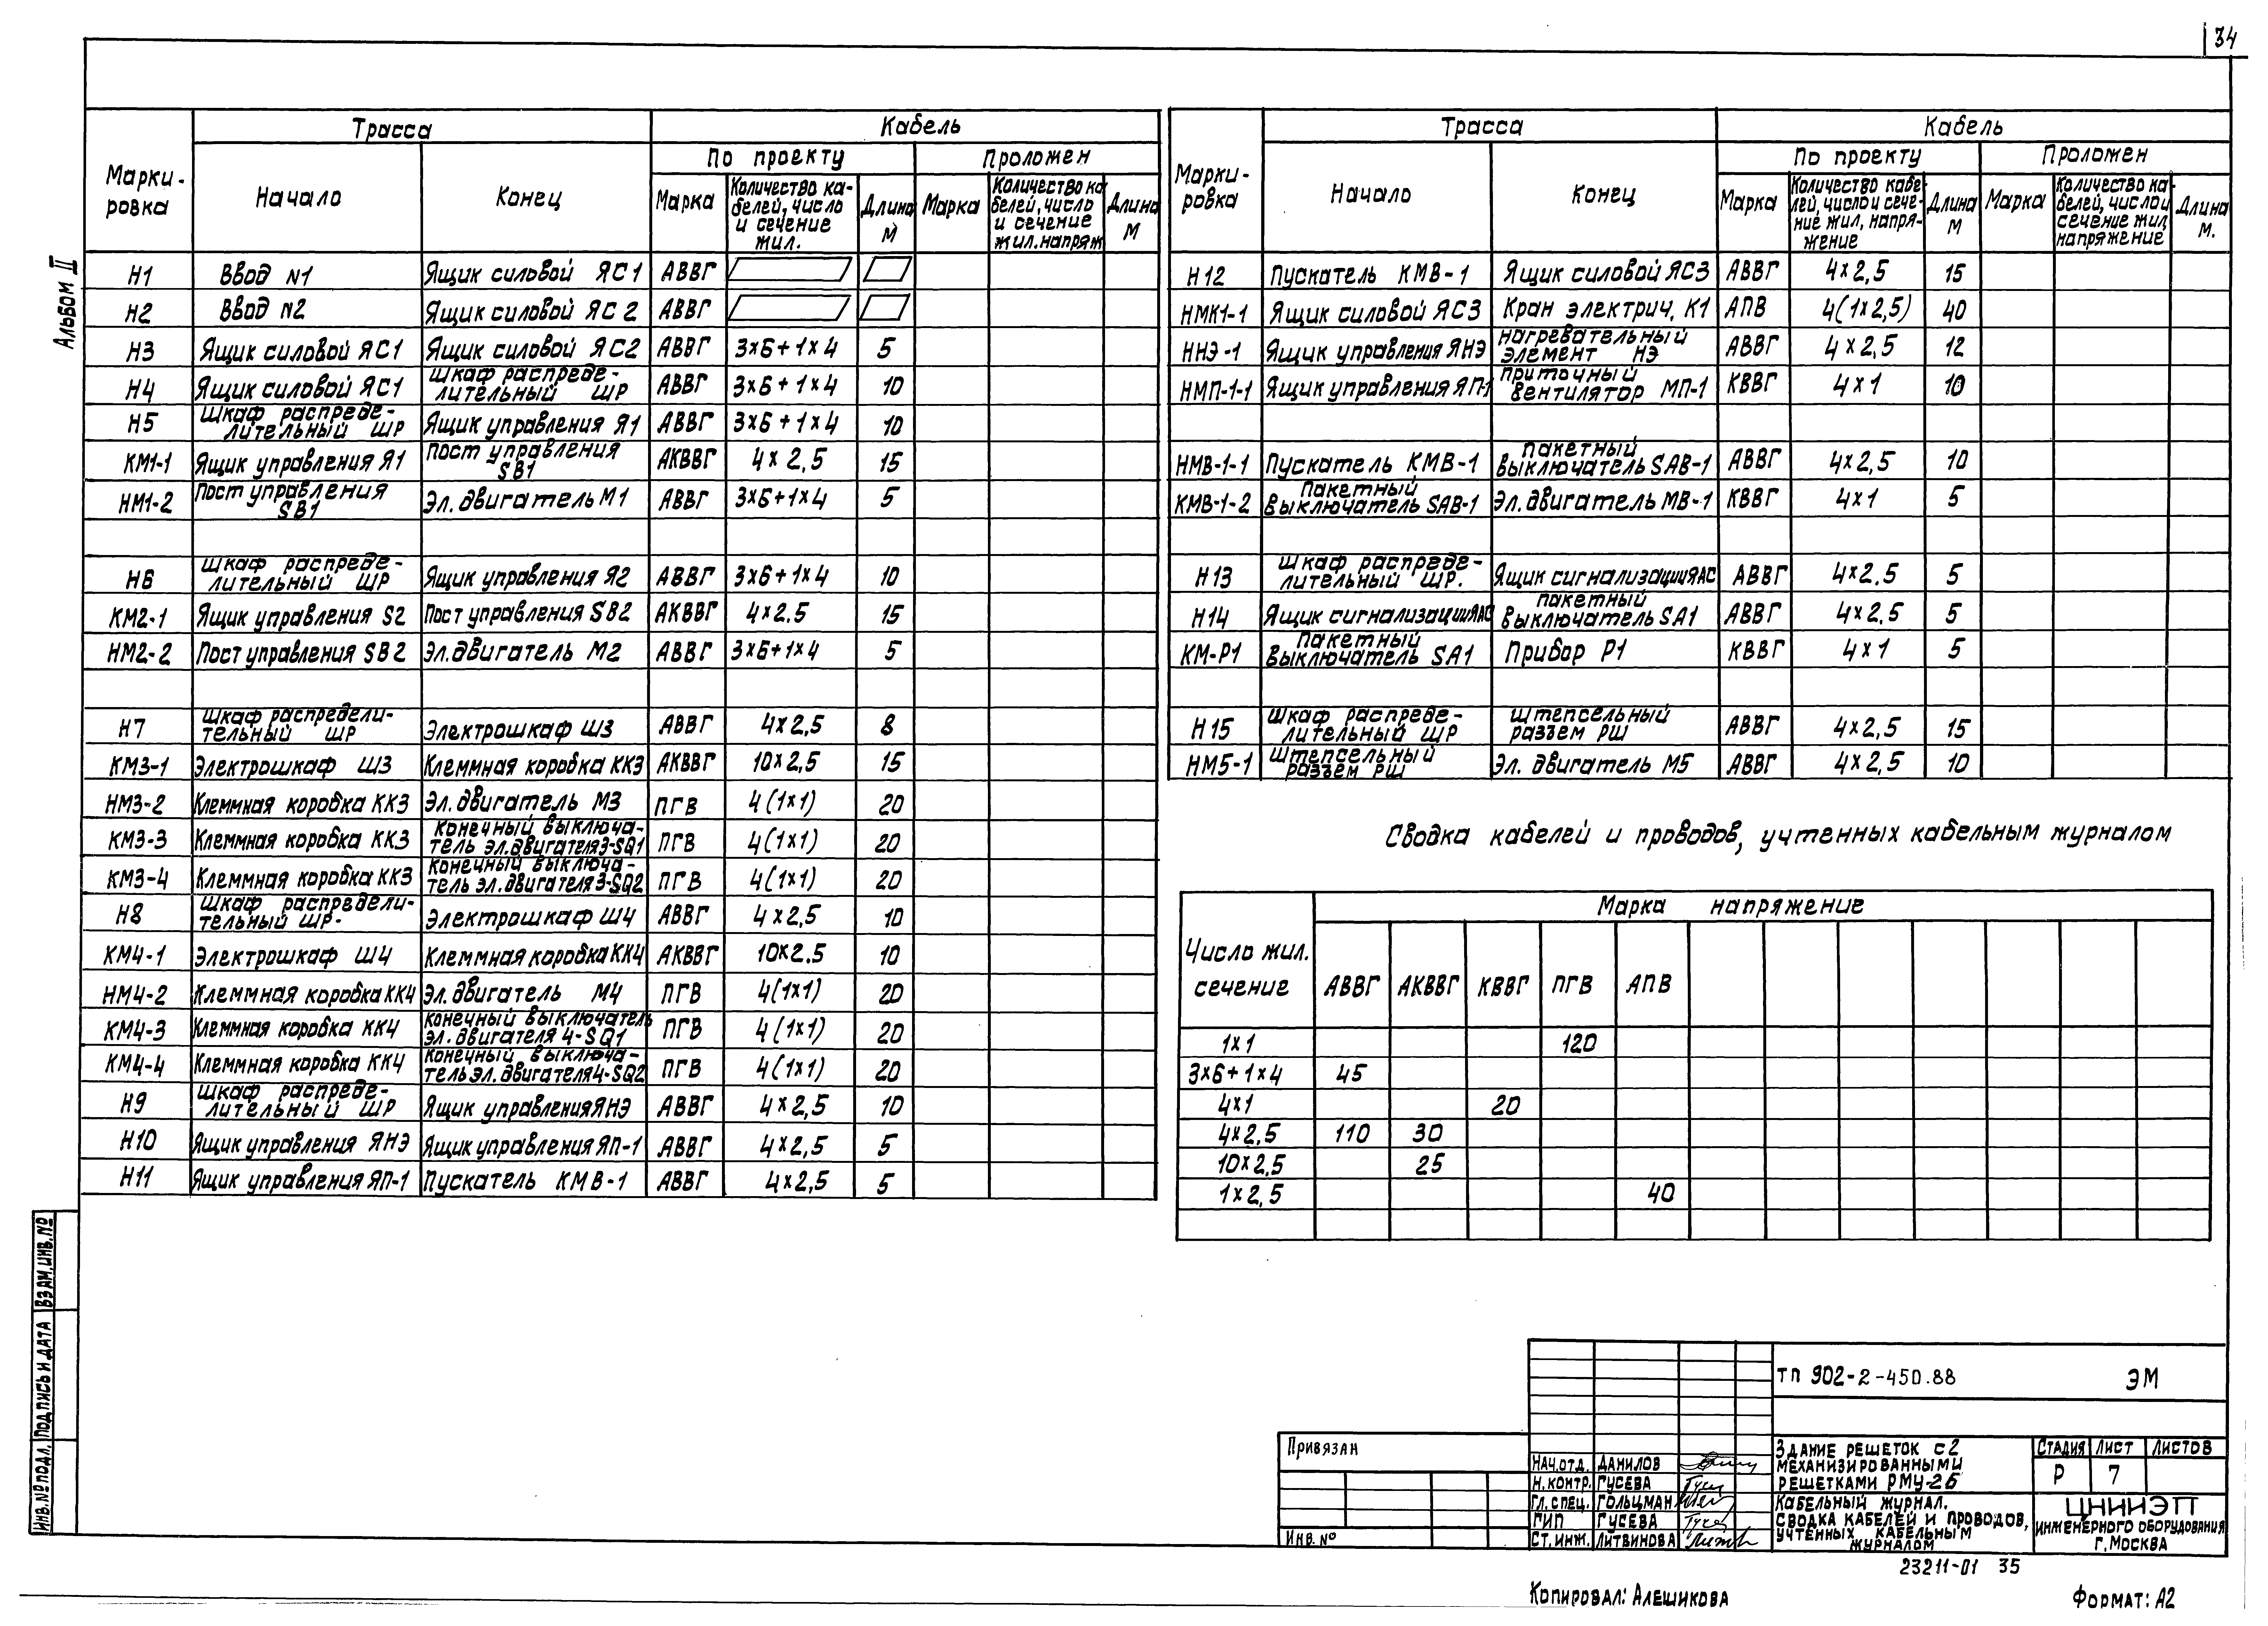 34
Альбом II
Марки-
ровка
Трасса
Кабель
Начало
Конец
По проекту
Проложен
Марка
Количество ка-
белей, число
и сечение
жил.
Длина
м
Марка
Количество ка
белей, число
и сечение
жил. напряж
Длина
м
Н1 Ввод N1 Ящик силовой ЯС1 АВВГ
Н2 Ввод N2 Ящик силовой ЯС2 АВВГ
Н3 Ящик силовой ЯС1 Ящик силовой ЯС2 АВВГ 3×6+1×4 5
Н4 Ящик силовой ЯС1 Шкаф распреде-
лительный ШР АВВГ 3×6+1×4 10
Н5 Шкаф распреде-
лительный ШР Ящик управления Я1 АВВГ 3×6+1×4 10
КМ1-1 Ящик управления Я1 Пост управления
SB1 АКВВГ 4×2,5 15
НМ1-2 Пост управления
SB1 Эл. двигатель М1 АВВГ 3×6+1×4 5
Н6 Шкаф распреде-
лительный ШР Ящик управления Я2 АВВГ 3×6+1×4 10
КМ2-1 Ящик управления S2 Пост управления SB2 АКВВГ 4×2.5 15
НМ2-2 Пост управления SB2 Эл.двигатель М2 АВВГ 3×6+1×4 5
Н7 Шкаф распредели-
тельный ШР Электрошкаф Ш3 АВВГ 4×2,5 8
КМ3-1 Электрошкаф Ш3 Клеммная коробка КК3 АКВВГ 10×2,5 15
НМ3-2 Клеммная коробка КК3 Эл. двигатель М3 ПГВ 4(1×1) 20
КМ3-3 Клеммная коробка КК3 Конечный выключа-
тель эл.двигателя 3-SQ1 ПГВ 4(1×1) 20
КМ3-4 Клеммная коробка КК3 Конечный выключа-
тель эл. двигателя 3-SQ2 ПГВ 4(1×1) 20
Н8 Шкаф распредели-
тельный ШР. Электрошкаф Ш4 АВВГ 4×2,5 10
КМ4-1 Электрошкаф Ш4 Клеммная коробка КК4 АКВВГ 10×2.5 10
НМ4-2 Клеммная коробка КК4 Эл. двигатель М4 ПГВ 4(1×1) 20
КМ4-3 Клеммная коробка КК4 Конечный выключатель
эл. двигателя 4-SQ1 ПГВ 4(1×1) 20
КМ4-4 Клеммная коробка КК4 Конечный выключа-
тель эл. двигателя 4-SQ2 ПГВ 4(1×1) 20
Н9 Шкаф распреде-
лительный ШР Ящик управления ЯНЭ АВВГ 4×2,5 10
Н10 Ящик управления ЯНЭ Ящик управления ЯП-1 АВВГ 4×2,5 5
Н11 Ящик управления ЯП-1 Пускатель КМВ-1 АВВГ 4×2,5 5
Марки-
ровка
Трасса
Кабель
Начало
Конец
По проекту
Проложен
Марка
Количество кабе-
лей, число и сече-
ние жил, напря-
жение
Длина
м
Марка
Количество ка-
белей, число и
сечение жил,
напряжение
Длина
м.
Н12 Пускатель КМВ-1 Ящик силовой ЯС3 АВВГ 4×2,5 15
НМК1-1 Ящик силовой ЯС3 Кран электрич. К1 АПВ 4(1×2,5) 40
ННЭ-1 Ящик управления ЯНЭ Нагревательный
элемент НЭ АВВГ 4×2,5 12
НМП-1-1 Ящик управления ЯП-1 Приточный
вентилятор МП-1 КВВГ 4×1 10
НМВ-1-1 Пускатель КМВ-1 Пакетный
выключатель SAВ-1 АВВГ 4×2,5 10
КМВ-1-2 Пакетный
выключатель SAВ-1 Эл. двигатель МВ-1 КВВГ 4×1 5
Н13 Шкаф распреде-
лительный ШР. Ящик сигнализации ЯС АВВГ 4×2.5 5
Н14 Ящик сигнализации ЯС Пакетный
выключатель SA1 АВВГ 4×2,5 5
КМ-Р1 Пакетный
выключатель SA1 Прибор Р1 КВВГ 4×1 5
Н15 Шкаф распреде-
лительный ШР Штепсельный
разъем РШ АВВГ 4×2,5 15
НМ5-1 Штепсельный
разъем РШ Эл. двигатель М5 АВВГ 4×2,5 10
Сводка кабелей и проводов, учтенных кабельным журналом
Число жил.
сечение
Марка напряжение
АВВГ АКВВГ КВВГ ПГВ АПВ
1×1 120
3×6+1×4 45
4×1 20
4×2,5 110 30
10×2,5 25
1×2,5 40
Инв.№подл. Подпись и дата Взам.инв.№
Привязан
Инв. №
Нач.отд. Данилов
Н.контр. Гусева
Гл.спец. Гольцман
ГИП Гусева
Ст.инж. Литвинова
ТП 902-2-450.88 ЭМ
Здание решеток с 2
механизированными
решетками РМУ-2Б
Стадия Лист Листов
Р 7
Кабельный журнал.
Сводка кабелей и проводов,
учтенных кабельным
журналом
ЦНИИЭП
инженерного оборудования
г. Москва
23211-01 35
Копировал: Алешикова
Формат: А2